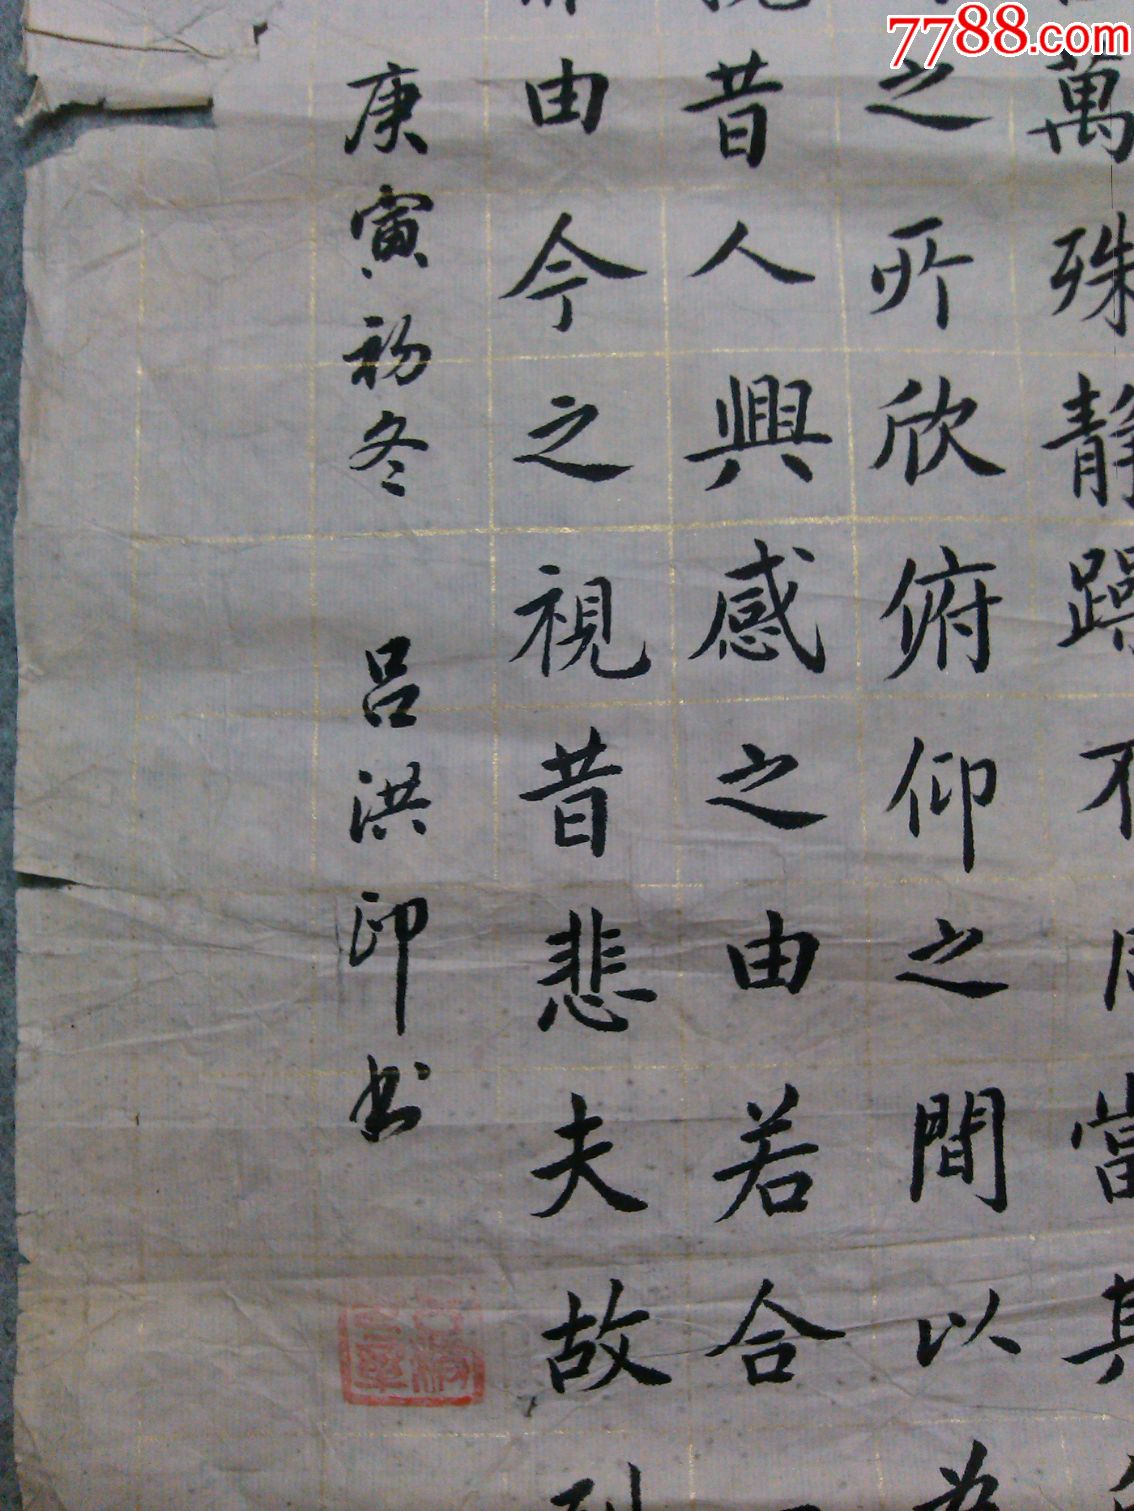 7788.com
萬殊静躁不同當其
之所欣俯仰之間以為
昔人興感之由若合一
由今之視昔悲夫故列
庚寅初冬 吕洪印书